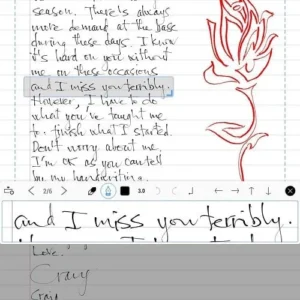 season. There's always
more demand at the base
during these days. I know
it's hard on you without
me on these occasions
and I miss you terribly.
However, I have to do
what you've taught me
to: finish what I started.
Don't worry about me.
I'm OK as you can tell
by my handwriting.
2/6
3.0
and I miss you terribly.
Love,
Craig
Craig